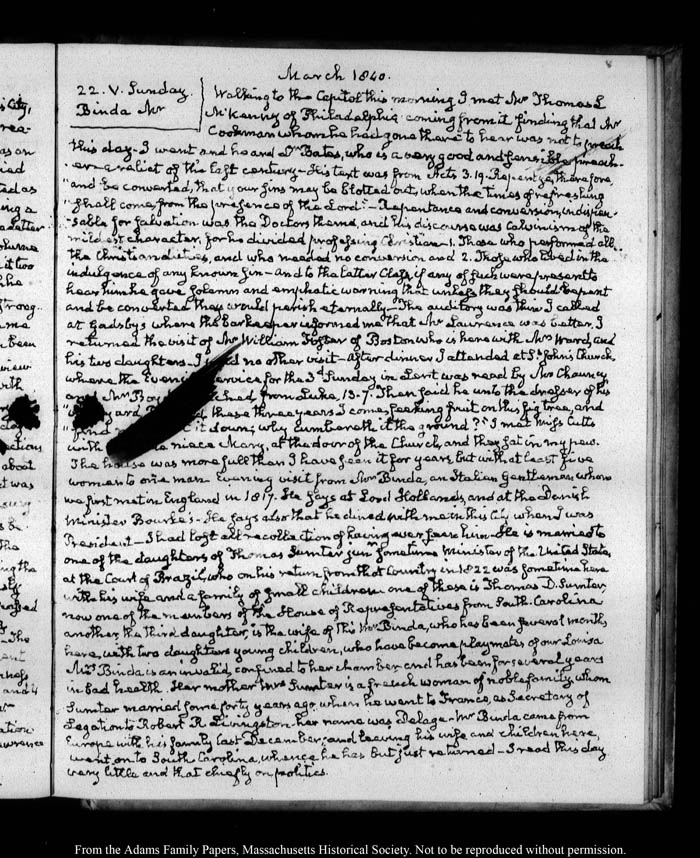 March 1840.
22. V. Sunday.
Binda Mr
Walking to the Capitol this morning I met Mr Thomas L
McKenny of Philadelphia coming from it finding that Mr
Cookman whom he had gone there to hear was not to preach
this day. I went and heard Dr Bates, who is a very good and sensible preach-
er a relict of the last century. His text was from Acts 3.19. Repent ye therefore,
"and be converted, that your sins may be blotted out, when the times of refreshing
"shall come from the presence of the Lord." Repentance and conversion, indispen-
sable for salvation was the Doctors theme, and his discourse was Calvinism of the
mildest character, for he divided professing Christians 1. Those who performed all
the Christian duties, and who needed no conversion and 2. Those who lived in the
indulgence of any known sin - and to the latter Class, if any of such were present to
hear him he gave solemn and emphatic warning that unless they should repent
and be converted they would perish eternally. The auditory was thin. I called
at Gadsby's where the barkeeper informed me that Mr Lawrence was better. I
returned the visit of Mr William Foster of Boston who is here with Mrs Ward, and
his two daughters. I no other visit - after dinner I attended at St John's Church,
where the Evening service for the 3d Sunday in Lent was read by Mr Chauncy
and Mr from Luke, 13.7. Then said he unto the dresser of his
and these three years I come, seeking fruit on this fig tree, and
"find it down; why cumbereth it the ground?" I met Miss Cutts
with niece Mary, at the door of the Church, and they sat in my pew.
The house was more full than I have seen it for years, but with at least five
women to one man. Evening visit from Mr Binda, an Italian Gentleman whom
we first met in England in 1817. He says at Lord Holland's, and at the Danish
Minister Bourke's - He says also that he dined with me in this City when I was
President - I had lost all recollection of having ever seen him. He is married to
one of the daughters of Thomas Sumter junr sometime Minister of the United States,
at the Court of Brazil, who on his return from that Country in 1822 was sometime here
with his wife and a family of small children one of these is Thomas D. Sumter,
now one of the members of the House of Representatives from South-Carolina
another the third daughter, is the wife of this Mr Binda, who has been several months
here, with two daughters young children, who have become playmates of our Louisa
Mrs Binda is an invalid, confined to her chamber and has been for several years
in bad health. Her mother Mrs Sumter is a french woman of noble family whom
Sumter married some forty years ago, when he went to France, as Secretary of
Legation to Robert R Livingston. her name was Delage - Mr Binda came from
Europe with his family last December, and leaving his wife and children here,
went on to South Carolina, whence he has but just returned - I read this day
very little and that chiefly on politics.
From the Adams Family Papers, Massachusetts Historical Society. Not to be reproduced without permission.